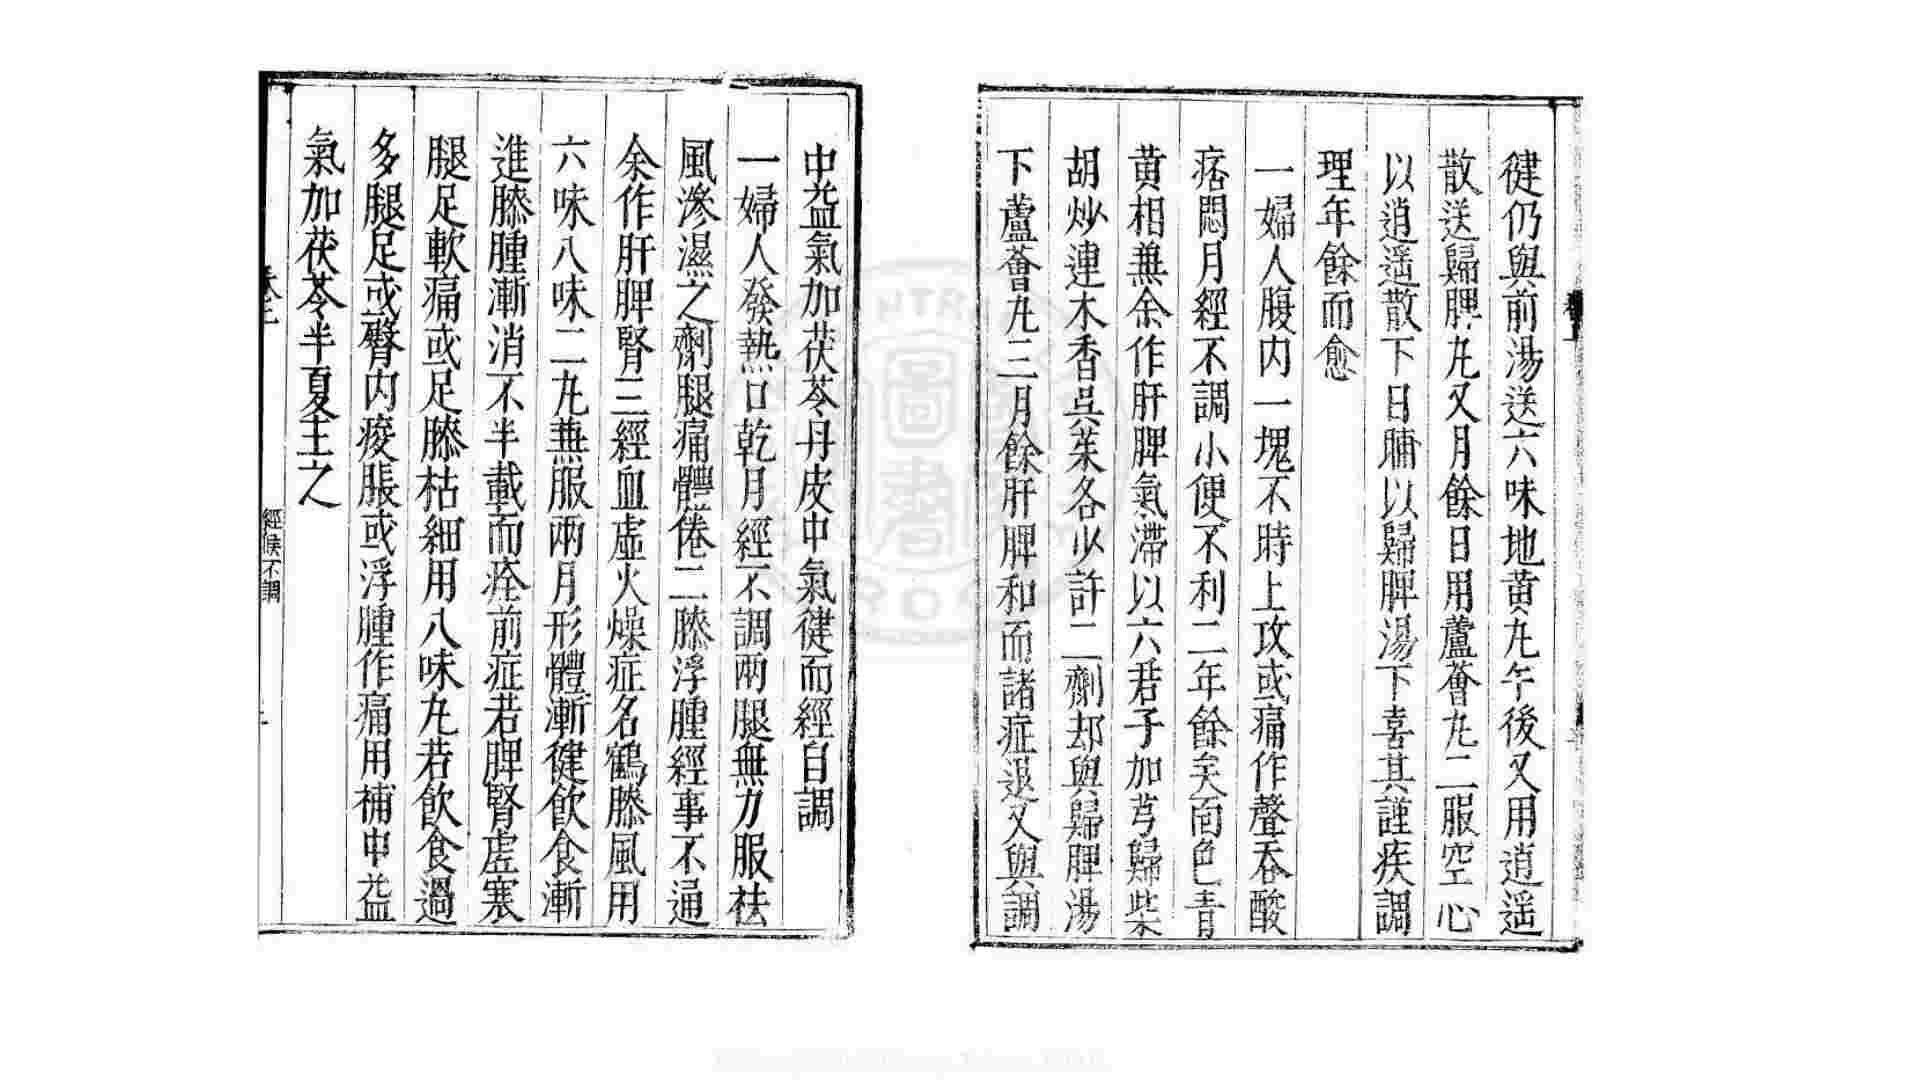 健仍與前湯送六味地黃丸午後又用逍遥
散送歸脾丸又月餘日用蘆薈丸二服空心
以逍遥散下日晡以歸脾湯下喜其謹疾調
理年餘而愈
一婦人腹内一塊不時上攻或痛作聲吞酸
痞悶月經不調小便不利二年餘矣面色青
黄相兼余作肝脾氣滯以六君子加芎歸柴
胡炒連木香吳茱各少許二劑却與歸脾湯
下蘆薈丸三月餘肝脾和而諸症退又與調
中益氣加茯苓丹皮中氣健而經自調
一婦人發熱口乾月經不調兩腿無力服祛
風滲濕之劑腿痛體倦二膝浮腫經事不通
余作肝脾腎三經血虛火燥症名鶴膝風用
六味八味二丸兼服兩月形體漸健飲食漸
進膝腫漸消不半載而痊前症若脾腎虛寒
腿足軟痛或足膝枯細用八味丸若飲食過
多腿足或臀内痠脹或浮腫作痛用補中益
氣加茯苓半夏主之
經候不調